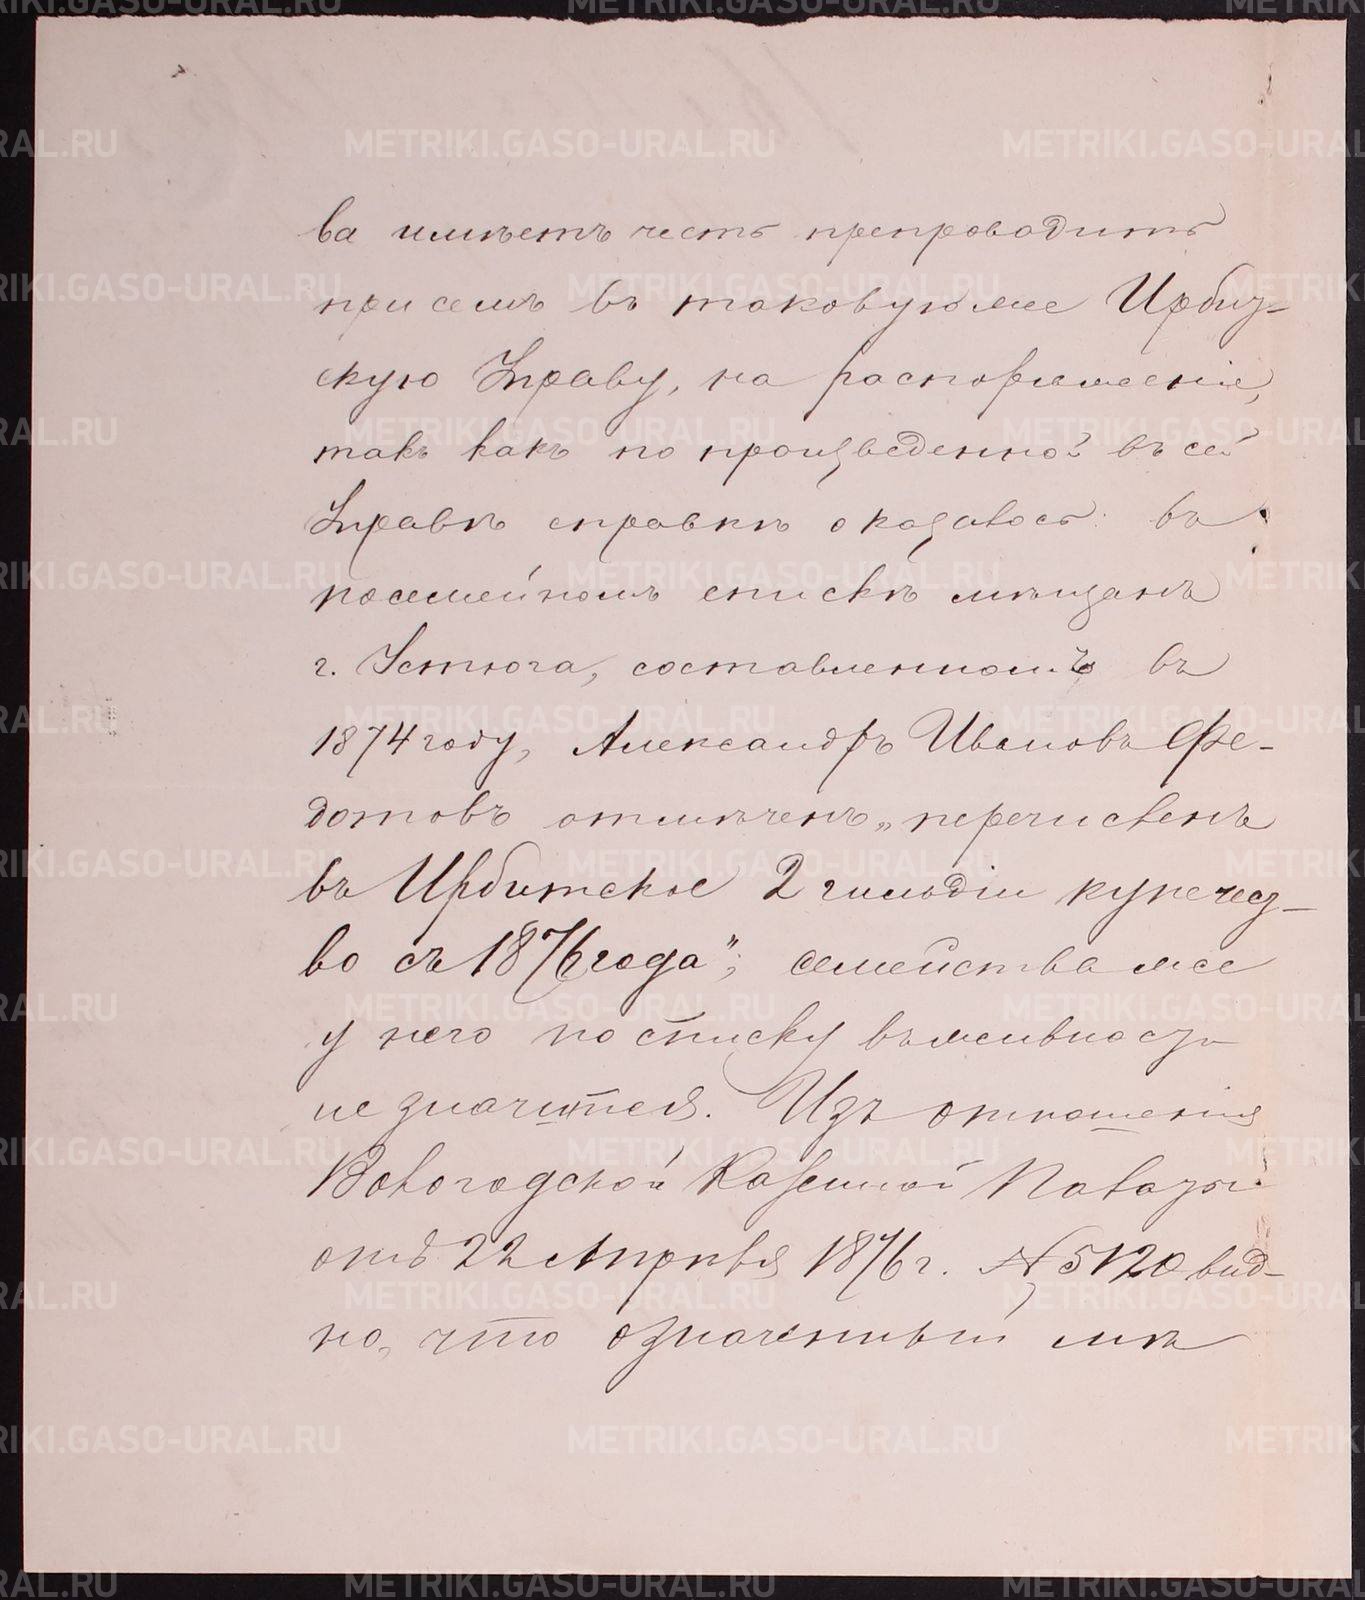 ва имѣетъ честь препроводить
при семъ въ таковую же Ирбит-
скую Управу, на распоряженіе,
такъ какъ по произведенной въ сей
Управѣ справкѣ оказалось: въ
посемейномъ спискѣ мѣщанъ
г. Устюга, составленномъ въ
1874 году, Александръ Ивановъ Фе-
дотовъ отмѣченъ „перечисленъ
въ Ирбитское 2 гильдіи купечест-
во съ 1876 года"; семейства же
у него по списку въ живности
не значится. Изъ отношенія
Вологодской Казенной Палаты
отъ 22 Апрѣля 1876 г. № 5120 вид-
но, что означенный мѣ
METRIKI.GASO-URAL.RU